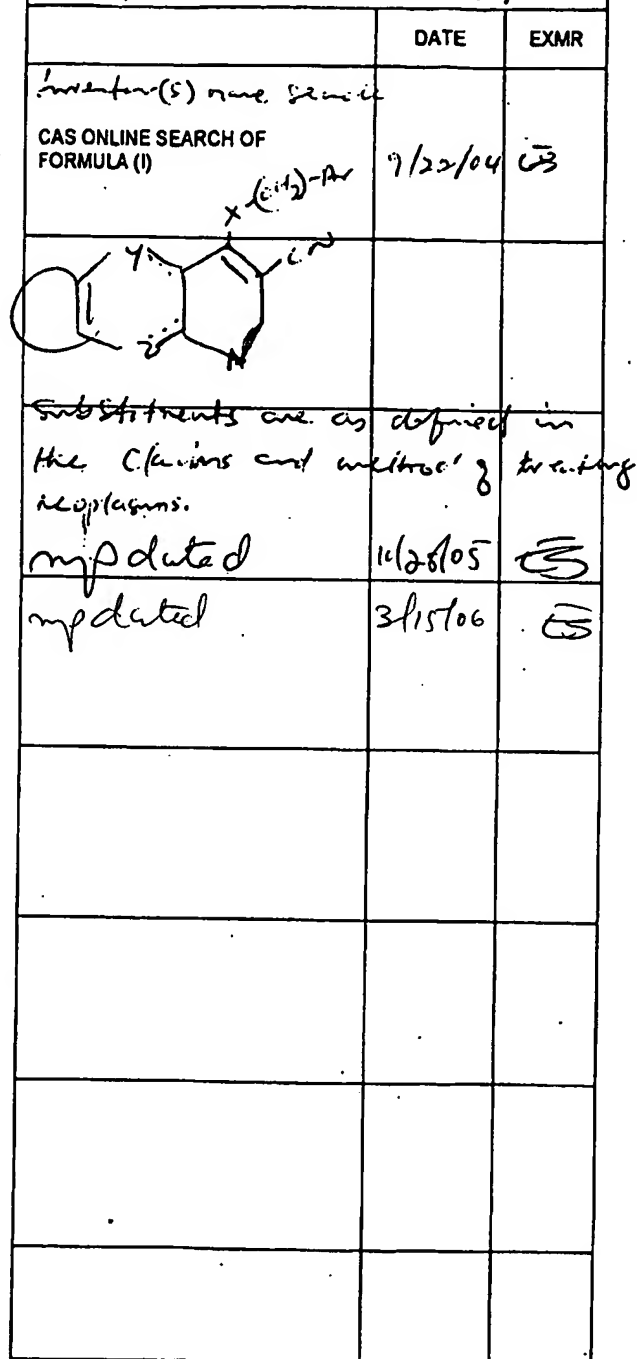 DATE EXMR
Inventor(s) name search
CAS ONLINE SEARCH OF
FORMULA (I) 9/22/04
X-(CH2)-Ar
Y CN
Z N
Substituents are as defined in
the Claims and method of treating
neoplasms.
updated 11/28/05
updated 3/15/06